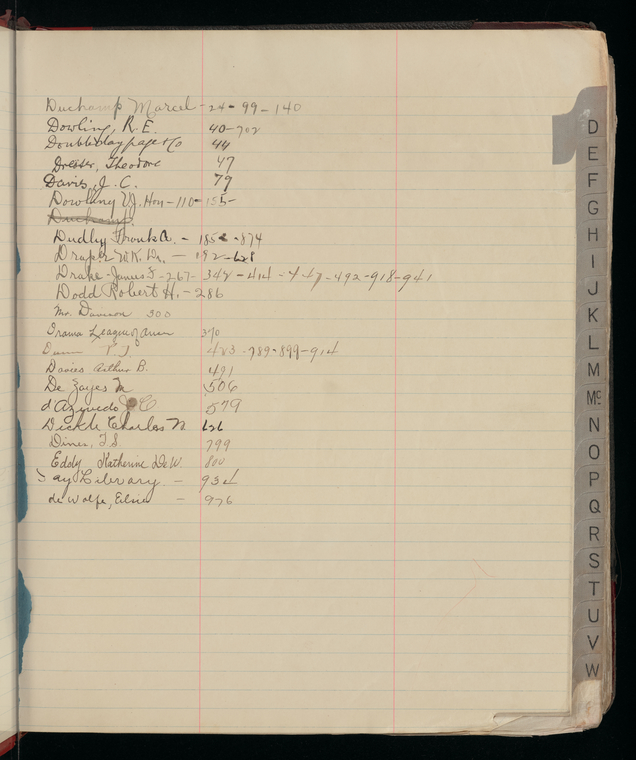 Duchamp Marcel - 24 - 99 - 140
Dowling, R.E. 40-702
Doubleday page & Co 44
Dreiser, Theodore 47
Davis, J. C. 79
Dowling V.J. Hon - 110 - 155 -
Duchamp
Dudley A. - 185 - 874
Draper W.K. Dr. - 192-628
Drake - James F - 267 - 342 - 414 - 492 - 918 - 941
Dodd Robert H. - 286
Mr. Davison 300
Drama League of Amer 370
Dunn 483 - 789 - 899 - 914
Davies Arthur B. 491
De Zayas M 506
d'Azevedo 579
Dickle Charles N 626
Dines, F.S 799
Eddy Katherine DeW. 800
Day Library - 934
de Wolfe, Elsie - 976
D
E
F
G
H
I
J
K
L
M
Mc
N
O
P
Q
R
S
T
U
V
W